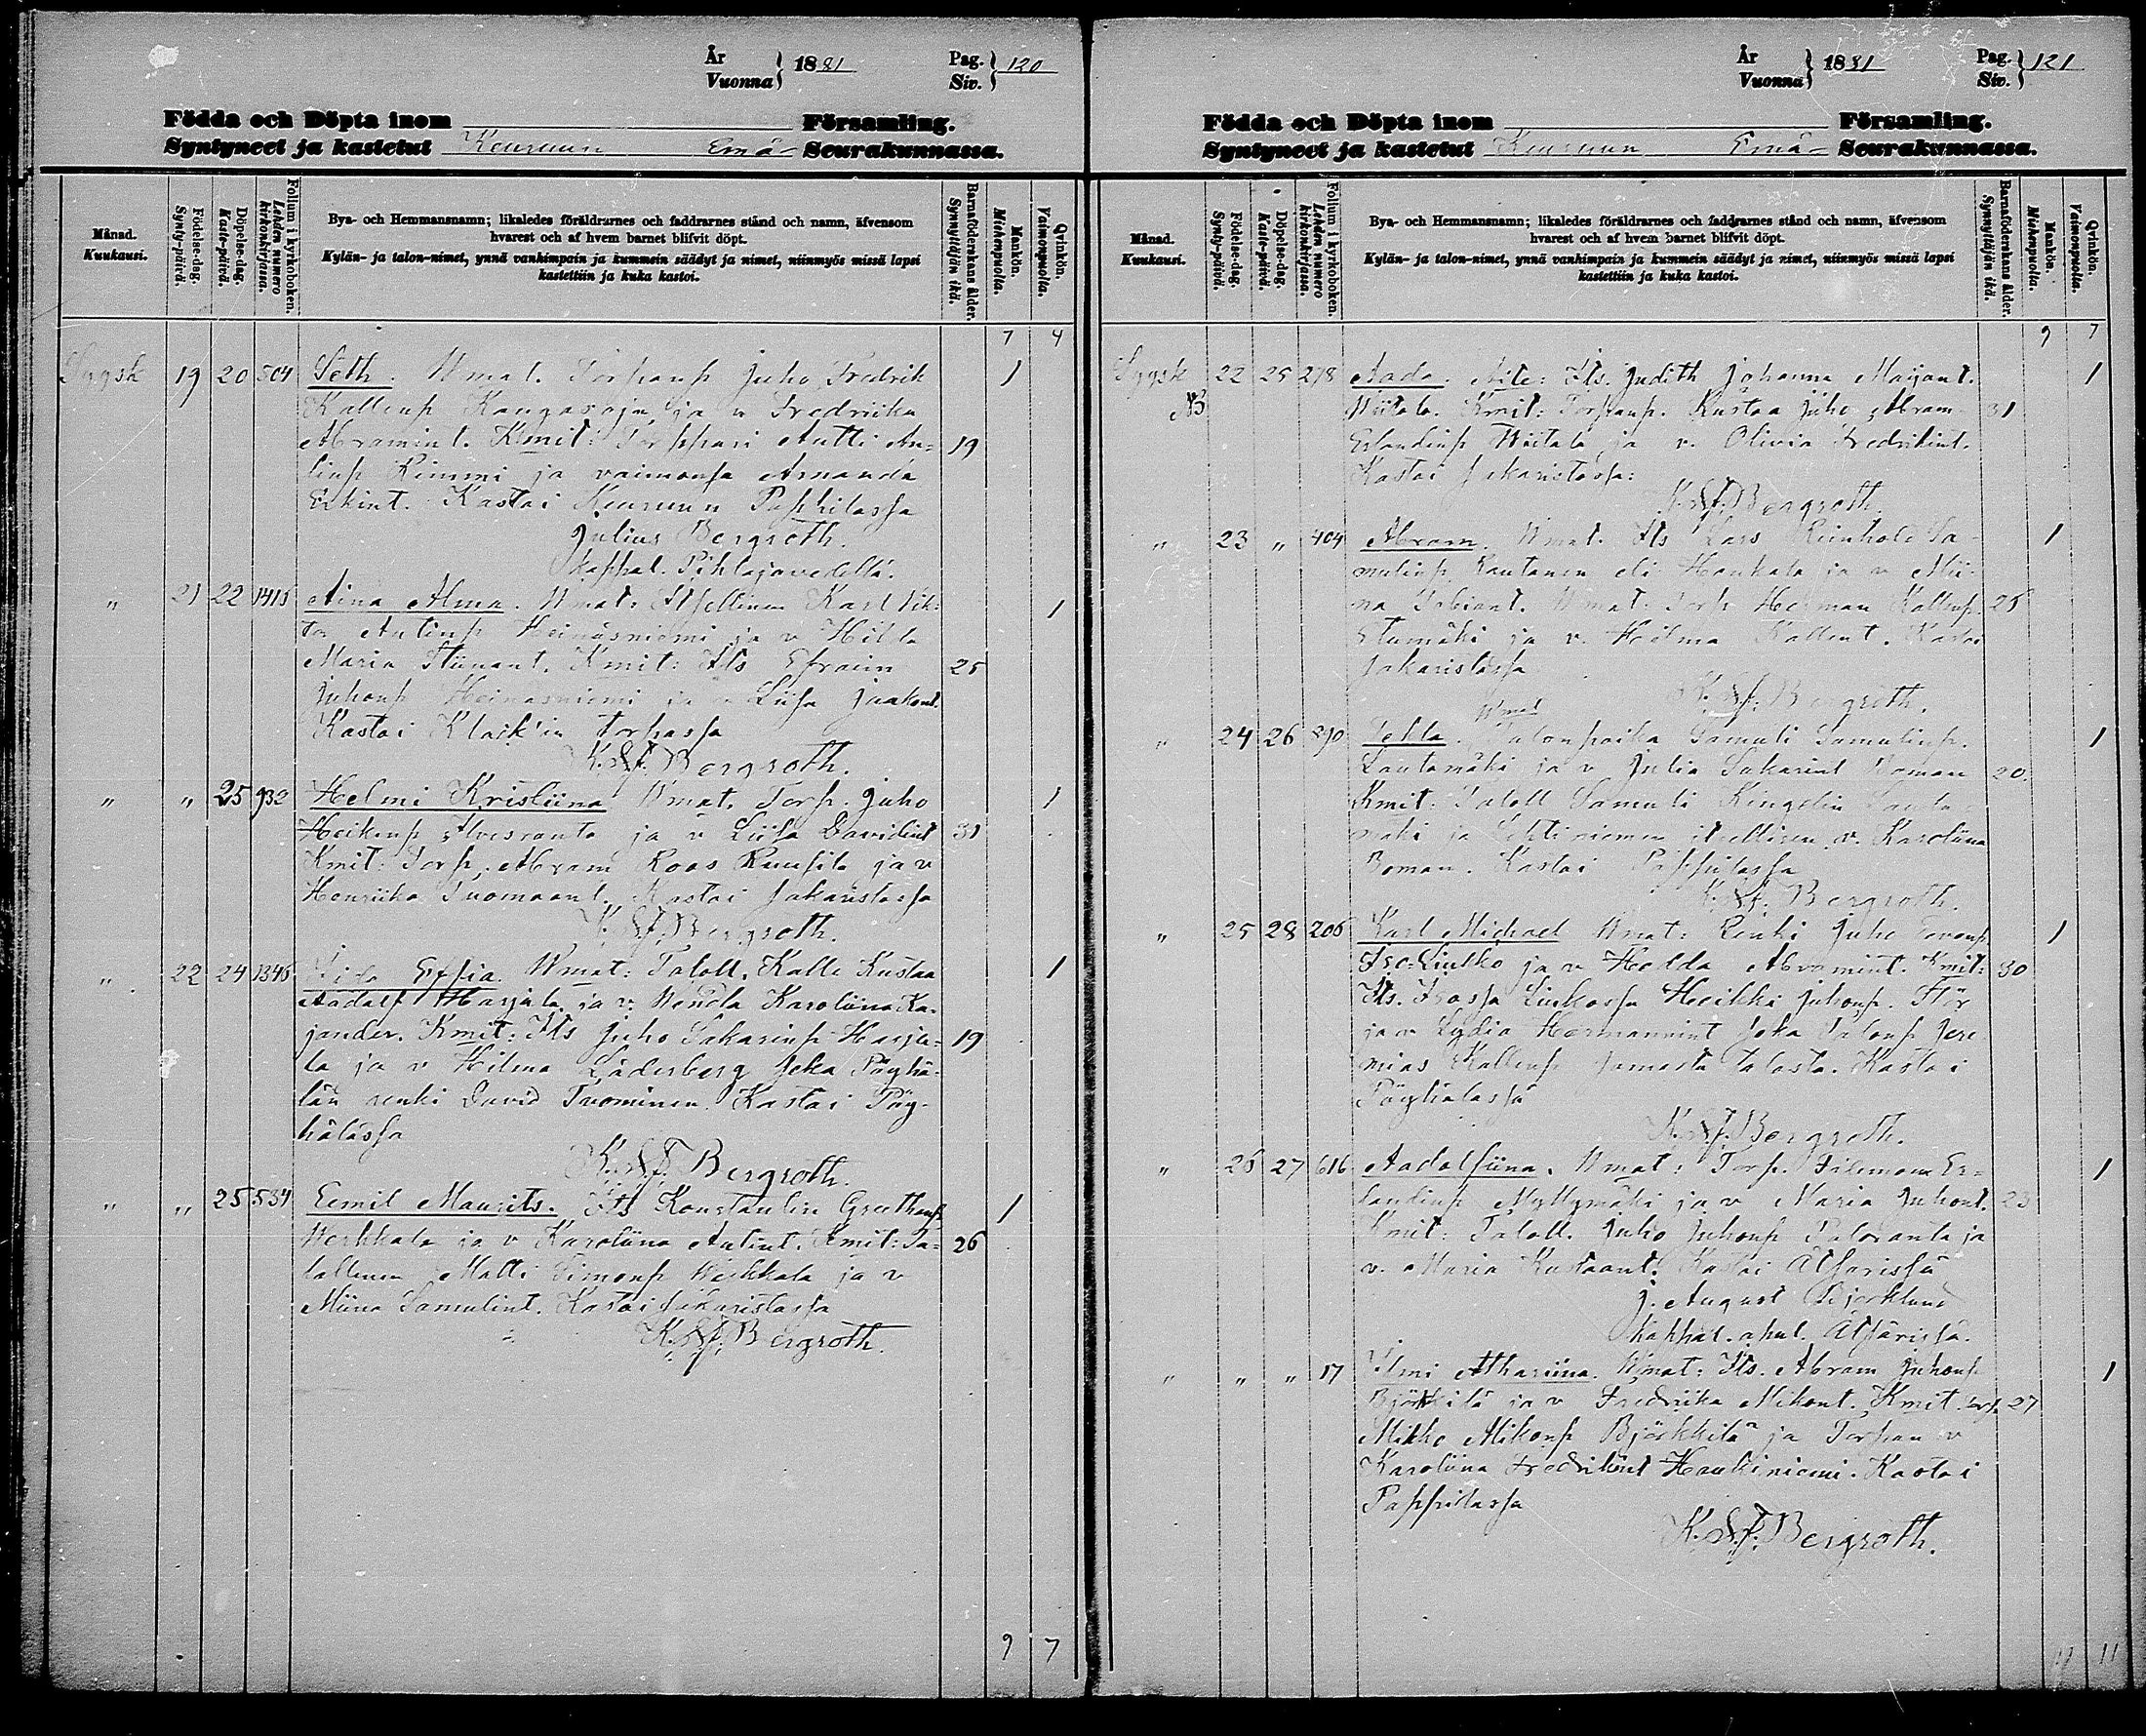 År
Vuonna } 1881 Pag.
Siv. } 120
Födda och Döpta inom Församling.
Syntyneet ja kastetut Keuruun Emä- Seurakunnassa.
Månad.
Kuukausi.
Födelse-dag.
Synty-päivä.
Döpelse-dag.
Kaste-päivä.
Folium i kyrkoboken.
Lehden numero
kirkonkirjassa.
Bya- och Hemmansnamn; likaledes föräldrarnes och faddrarnes stånd och namn, äfvensom
hvarest och af hvem barnet blifvit döpt.
Kylän- ja talon-nimet, ynnä vanhimpain ja kummein säädyt ja nimet, niinmyös missä lapsi
kastettiin ja kuka kastoi.
Barnaföderskans ålder.
Synnyttäjän ikä.
Mankön.
Miehenpuolia.
Qvinkön.
Vaimonpuolia.
7 4
Syysk 19 20 504 Seth. Wmat. Torpanp Juho Fredrik 1
Kallenp Kangasoja ja v Fredriika
Abramint. Kmit: Torppari Antti An- 19
tinp Rimmi ja vaimonsa Amanda
Erkint. Kastoi Keuruun Pappilassa
Julius Bergroth.
kappal. Pihlajavedellä.
" 21 22 1415 Aina Alma. Wmat: Itsellinen Karl Vik- 1
tor Antinp Heinäsniemi ja v Hilda
Maria Stiinant. Kmit: Its Efraim 25
Juhonp Heinäsniemi ja v Liisa Jaakont.
Kastoi Klack'in torpassa
K. Bergroth.
" " 25 932 Helmi Kristiina Wmat. Torp. Juho 1
Heikinp Ahvesranta ja v Liisa Davidint 31
Kmit: Torp. Abram Roos Ruusila ja v
Henriika Tuomaant. Kastoi Sakaristassa
K. Bergroth.
" 22 24 1346 Wmat: Taloll. Kalle Kustaa 1
Aadolf Harjula ja v. Wendla Karoliina Ka-
jander. Kmit: Its Juho Sakarinp Harju- 19
la ja v Hilma Läderberg seka Päyhä-
län renki David Tuominen. Kastoi Päy-
hälässä
K. Bergroth.
" " 25 534 Eemil Maurits. Its Konstantin 1
Werkkala ja v Karoliina Antint. Kmit: Ta- 26
lollinen Matti Simonp Werkkala ja v
Miina Samulint. Kastoi Sakaristassa
K. Bergroth.
9 7
År
Vuonna } 1881 Pag.
Siv. } 121
Födda och Döpta inom Församling.
Syntyneet ja kastetut Keuruun Emä- Seurakunnassa.
Månad.
Kuukausi.
Födelse-dag.
Synty-päivä.
Döpelse-dag.
Kaste-päivä.
Folium i kyrkoboken.
Lehden numero
kirkonkirjassa.
Bya- och Hemmansnamn; likaledes föräldrarnes och faddrarnes stånd och namn, äfvensom
hvarest och af hvem barnet blifvit döpt.
Kylän- ja talon-nimet, ynnä vanhimpain ja kummein säädyt ja nimet, niinmyös missä lapsi
kastettiin ja kuka kastoi.
Barnaföderskans ålder.
Synnyttäjän ikä.
Mankön.
Miehenpuolia.
Qvinkön.
Vaimonpuolia.
9 7
Syysk 22 25 278 Aada. Äite: Its. Judith Johanna Maijant. 1
Wiitala. Kmit: Torpanp. Kustaa Juho Abram 31
Erlandinp Wiitala ja v. Olivia Fredrikint.
Kastoi Sakaristassa:
K. Bergroth.
" 23 " 404 Abram. Wmat. Its Lars Reinhold Sa- 1
mulinp Rautanen eli Haukala ja v Mii-
na Tobiant. Wmat. Torp Herman Kallenp. 25
Etumäki ja v. Hilma Kallent. Kastoi
Sakaristassa
K. Bergroth.
Wmat
" 24 26 890 Tekla. Talonpoika Samuli Samulinp. 1
Lautamäki ja v Julia Sakarint Boman 20.
Kmit: Taloll Samuli Ringelin Lauta-
mäki ja itsellisen v. Karoliina
Boman. Kastoi Pappilassa
K. Bergroth.
" 25 28 206 Karl Michael Wmat: Renki Juho 1
Iso-Liukko ja v Hedda Abramint. Kmit: 30
Its. Isossa Liukossa Heikki Juhonp. Stör
ja v Lydia Hermannint seka Talonp Jere
mias Kallenp samasta talosta. Kastoi
Päyhälässä
K. Bergroth.
" 26 27 616 Aadolfiina. Wmat: Torp. Filemon Er- 1
landinp Myllymäki ja v Maria Juhont. 23
Kmit: Taloll. Juho Juhonp Paloranta ja
v. Maria Kustaant. Kastoi Ätsärissä
J. August Björklund
Kappal. apul. Ätsärissä.
" " " 17 Ilmi Athariina. Wmat: Its. Abram Juhonp 1
Björkkilä ja v Fredriika Mikont. Kmit. torp. 27
Mikko Mikonp Björkkilä ja Torpan v
Karoliina Fredrikint Haukiniemi. Kastoi
Pappilassa
K. Bergroth.
11 11